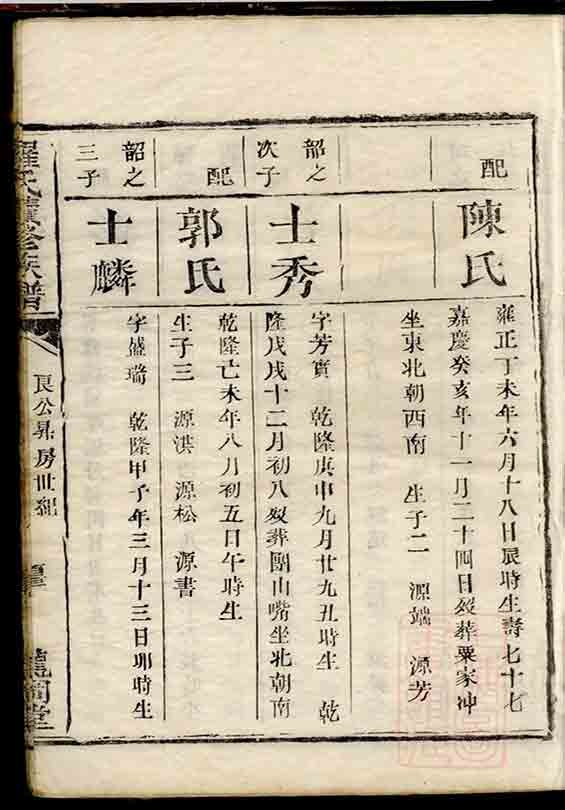 配
陳氏
雍正丁未年六月十八日辰時生壽七十七
嘉慶癸亥年十一月二十四日歿葬粟家冲
坐東北朝西南 生子二 源端 源芳
韶之
次子
士秀
字芳實 乾隆庚申九月廿九丑時生 乾
隆戊戌十二月初八歿葬團山嘴坐北朝南
配
郭氏
乾隆亡未年八月初五日午時生
生子三 源洪 源松 源書
韶之
三子
士麟
字盛瑞 乾隆甲子年三月十三日卯時生
羅氏續修族譜
良公昇房世紀